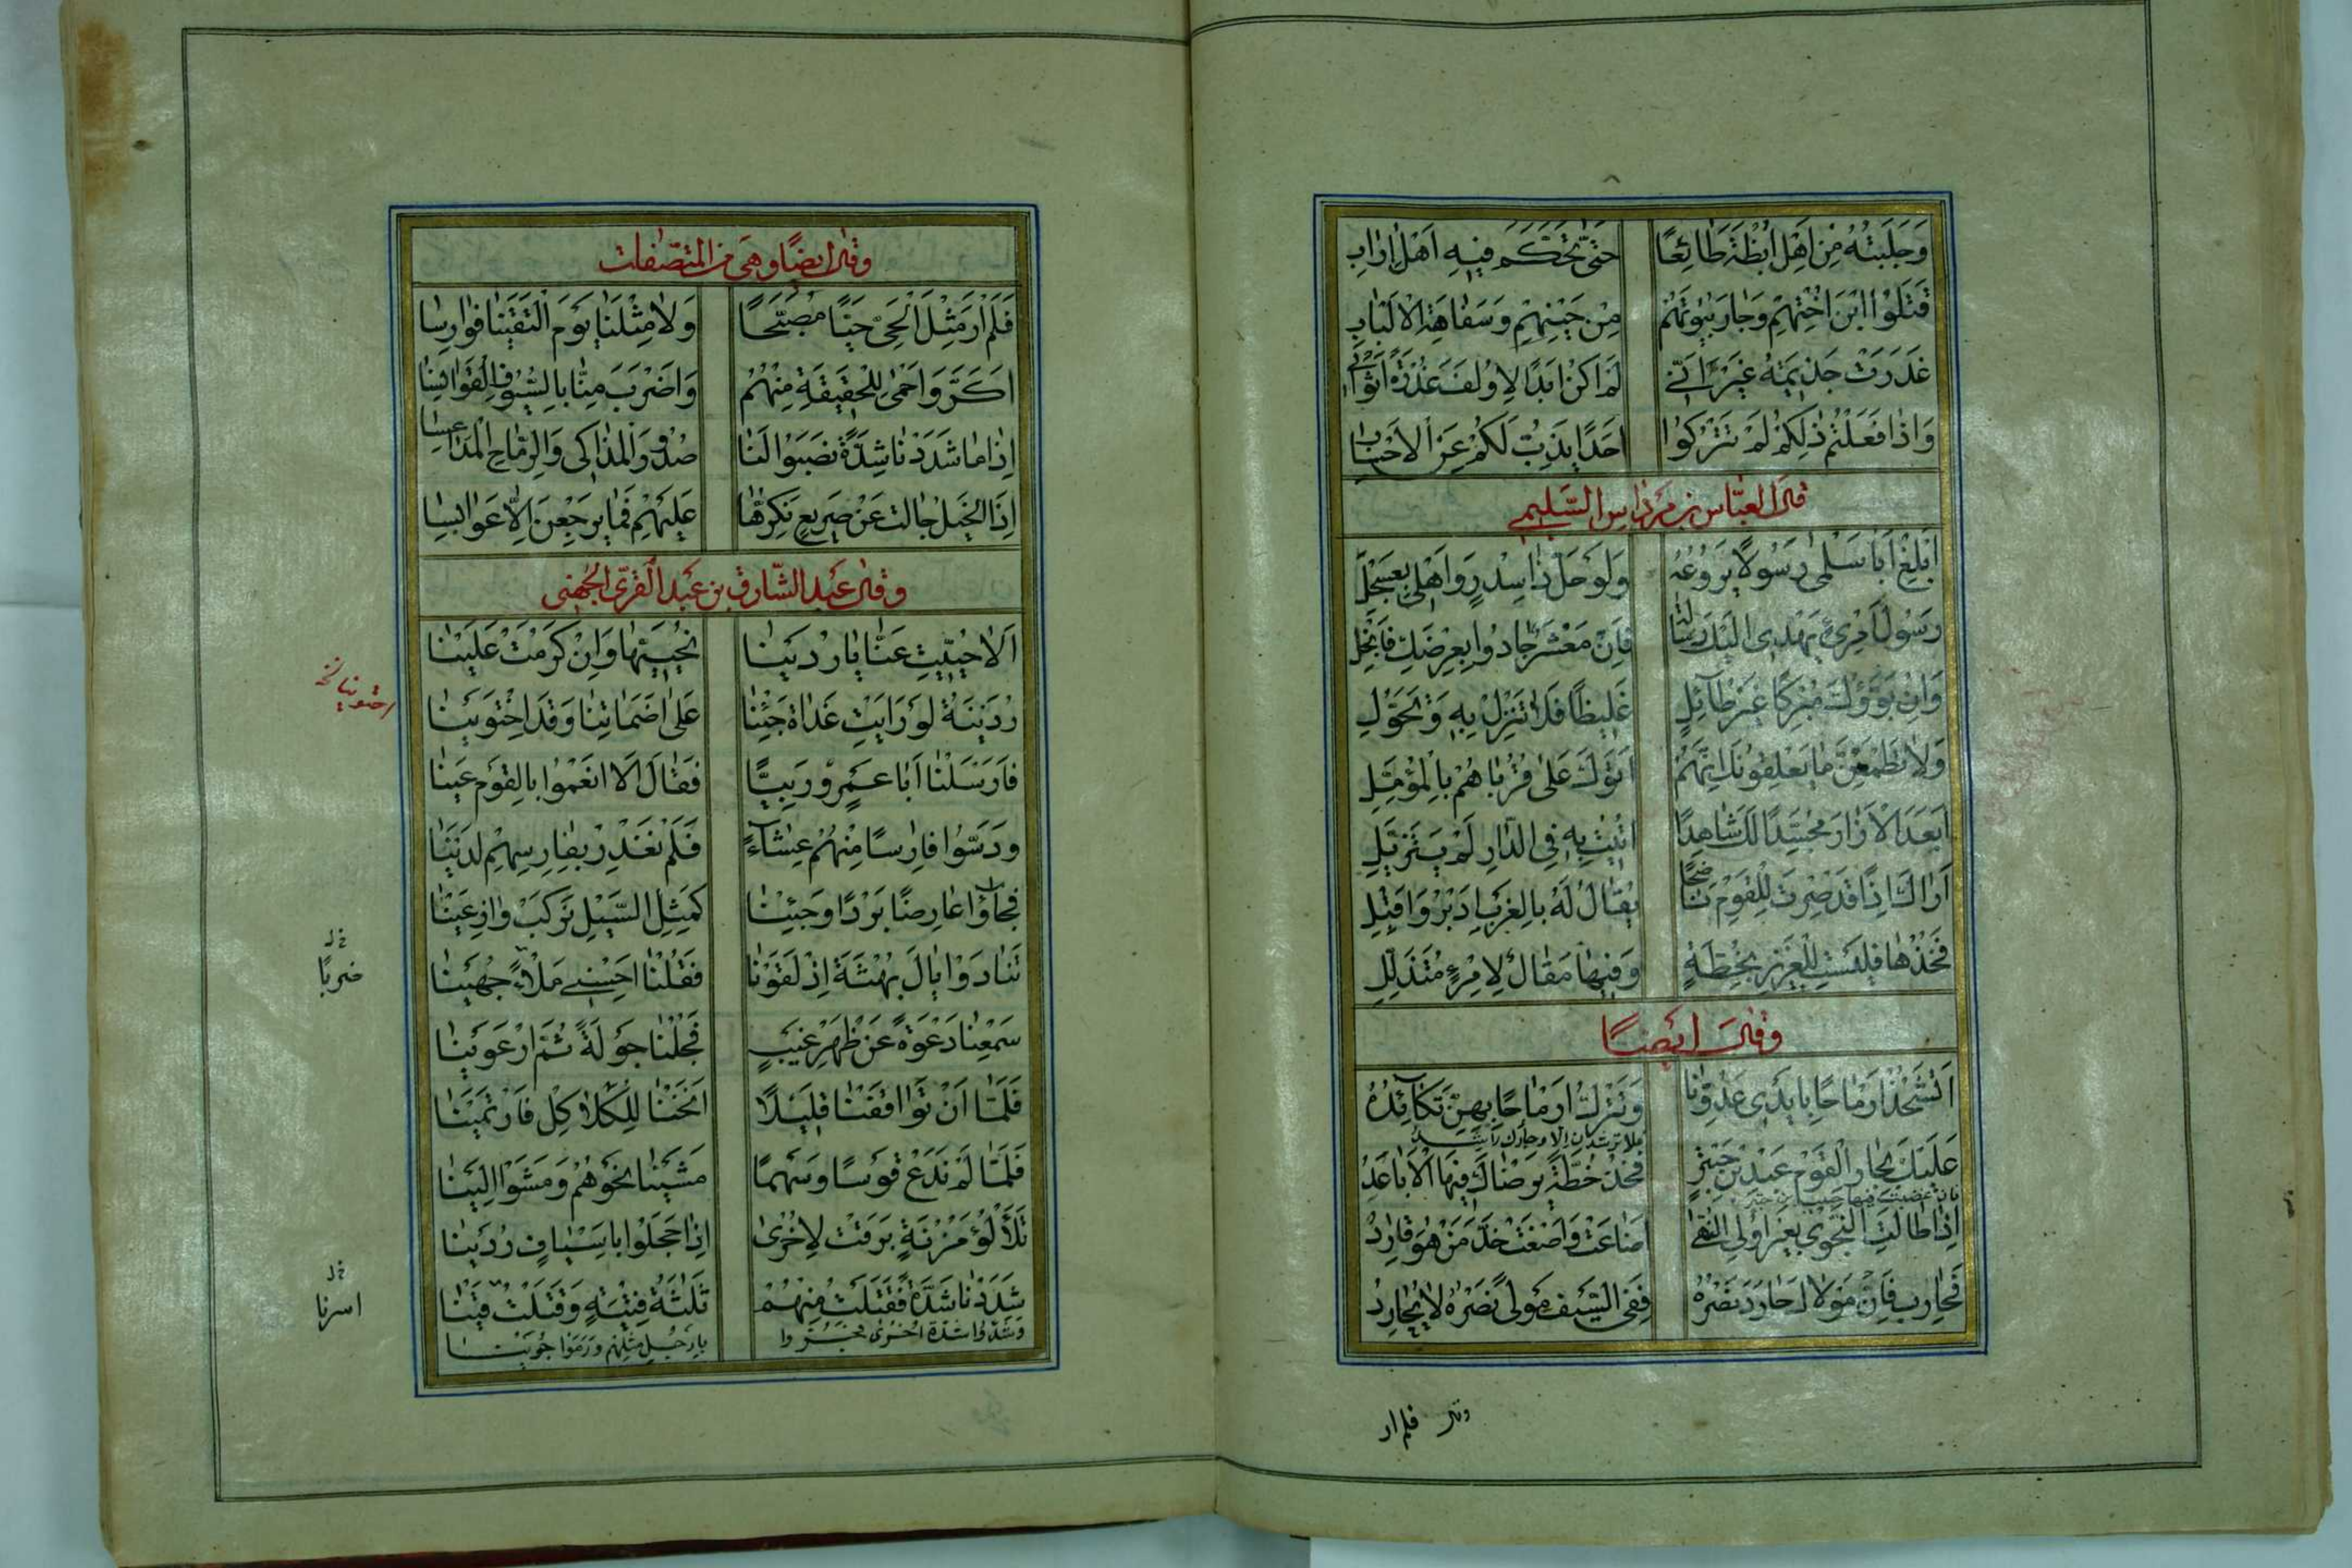 وَجَلَبْتُهُ مِنْ اَهْلِ اُبْظَةَ طَائِعًا حَتّٰى تَحَكَّمَ فِيهِ اَهْلُ اِرَابِ
قَتَلُوْا ابْنَ اُخْتِهِمْ وَجَارَ بُيُوتِهُمْ مِنْ حَيْنِهِمْ وَسَفَاهَةِ الْاَلْبَابِ
غَدَرَتْ جَذِيمَةُ غَيْرَ اَنّى لَمْ اَكُنْ اَبَدًا لِاُولِفَ غَدْرَةً اَثْوَابِى
وَاِذَا فَعَلْتُمْ ذٰلِكُمْ لَمْ تَتْرُكُوا اَحَدًا يَذِبُّ لَكُمْ عَنِ الْاَحْبَابِ
قال العبّاس بن مرداس السّليمى
اَبْلِغْ اَبَا سَلْمٰى رَسُولًا يَرُوعُهُ وَلَوْ حَلَّ ذَا سِدْرٍ وَاَهْلِى بِعَسْجَلِ
رَسُولَ امْرِئٍ يَهْدِى اِلَيْكَ رِسَالَةً فَاِنْ مَعْشَرٌ جَادُوا بِعِرْضِكَ فَابْخَلِ
وَاِنْ بَوَّؤُكَ مَبْرَكًا غَيْرَ طَآئِلٍ غَلِيظًا فَلَا تَنْزِلْ بِهِ وَتَحَوَّلِ
وَلَا تَطْمَعَنْ مَا يَعْلِفُونَكَ اِنَّهُمْ اَتَوْكَ عَلٰى قُرْبَاهُمْ بِالْمُؤَمَّلِ
اَبَعْدَ الْاِزَارِ مُجَسَّدًا لَكَ شَاهِدًا اُتِيْتَ بِهِ فِى الدَّارِ لَمْ يَتَزَيَّلِ
اَرَاكَ اِذًا قَدْ صِرْتَ لِلْقَوْمِ نَاضِحًا يُقَالُ لَهُ بِالْغَرْبِ اَدْبِرْ وَاَقْبِلِ
فَخُذْهَا فَلَيْسَتْ لِلْعَزِيزِ بِخُطَّةٍ وَفِيهَا مَقَالٌ لِامْرِءٍ مُتَذَلِّلِ
وقال ايضًا
اَتَشْحَذُ اَرْمَاحًا بِاَيْدِى عَدُوِّنَا وَتَتْرُكُ اَرْمَاحًا بِهِنَّ نُكَآئِدُ
عَلَيْكَ بِجَارِ الْقَوْمِ عَبْدِ بْنِ حَبْتَرٍ فلا ترشدن الا وجارك راشد
فان غضبت فيها حبيب بن حبتر فَخُذْ خُطَّةً يَرْضَاكَ فِيهَا الْاَبَاعِدُ
اِذَا طَالَتِ النَّجْوٰى بِغَيْرِ اُولِى النُّهٰى اَضَاعَتْ وَاَصْغَتْ خَدَّ مَنْ هُوَ فَارِدُ
فَحَارِبْ فَاِنْ مَوْلَاكَ حَارَدَ نَصْرُهُ فَفِى السَّيْفِ مَوْلًى نَصْرُهُ لَا يُحَارِدُ
وقال فلم ار
وقال ايضًا وهى من المتصّفات
فَلَمْ اَرَ مِثْلَ الْحَىِّ حَيًّا مُصَبَّحًا وَلَا مِثْلَنَا يَوْمَ الْتَقَيْنَا فَوَارِسَا
اَكَرَّ وَاَحْمٰى لِلْحَقِيقَةِ مِنْهُمُ وَاَضْرَبَ مِنَّا بِالسُّيُوفِ الْقَوَانِسَا
اِذَا مَا شَدَدْنَا شِدَّةً نَصَبُوا لَنَا صُدُورَ الْمَذَاكِى وَالرِّمَاحَ الْمَدَاعِسَا
اِذَا الْخَيْلُ جَالَتْ عَنْ صَرِيعٍ نَكِرُّهَا عَلَيْهِمْ فَمَا يَرْجِعْنَ اِلَّا عَوَابِسَا
وقال عبد الشّارق بن عبد القرّى الجهنى
اَلَا حُيِّيتِ عَنَّا يَا رُدَيْنَا نُحَيِّيهَا وَاِنْ كَرُمَتْ عَلَيْنَا
رُدَيْنَةُ لَوْ رَاَيْتِ غَدَاةَ جِئْنَا عَلٰى اَضَمَاتِنَا وَقَدِ اخْتَوَيْنَا
احتوينا نخ
فَاَرْسَلْنَا اَبَا عَمْرٍو رَبِيًّا فَقَالَ اَلَا انْعَمُوا بِالْقَوْمِ عَيْنَا
وَدَسُّوا فَارِسًا مِنْهُمْ عِشَآءً فَلَمْ نَغْدِرْ بِفَارِسِهِمْ لَدَيْنَا
فَجَآؤُا عَارِضًا بَرْدًا وَجِئْنَا كَمِثْلِ السَّيْلِ نَرْكَبُ وَازِعَيْنَا
تَنَادَوْا يَالَ بُهْثَةَ اِذْ لَقَوْنَا فَقُلْنَا اَحْسِنِى مَلْاءً جُهَيْنَا
خل ضربًا
سَمْعِنَا دَعْوَةً عَنْ ظَهْرِ غَيْبٍ فَجُلْنَا جَوْلَةً ثُمَّ ارْعَوَيْنَا
فَلَمَّا اَنْ تَوَاقَفْنَا قَلِيْلًا اَنَخْنَا لِلْكَلَاكِلِ فَارْتَمَيْنَا
فَلَمَّا لَمْ نَدَعْ قَوْسًا وَسَهْمًا مَشَيْنَا نَحْوَهُمْ وَمَشَوْا اِلَيْنَا
تَلَأْلُؤَ مُزْنَةٍ بَرَقَتْ لِاُخْرٰى اِذَا حَجَلُوا بِاَسْيَافٍ رُدَيْنَا
شَدَدْنَا شَدَّةً فَقَتَلْتُ مِنْهُمْ ثَلٰثَةَ فِتْيَةٍ وَقَتَلْتُ قَيْنَا
خل اسرنا
وَشَدّوا شدّة اخرى فجرّوا بارجل مثلهم ورموا جوينا